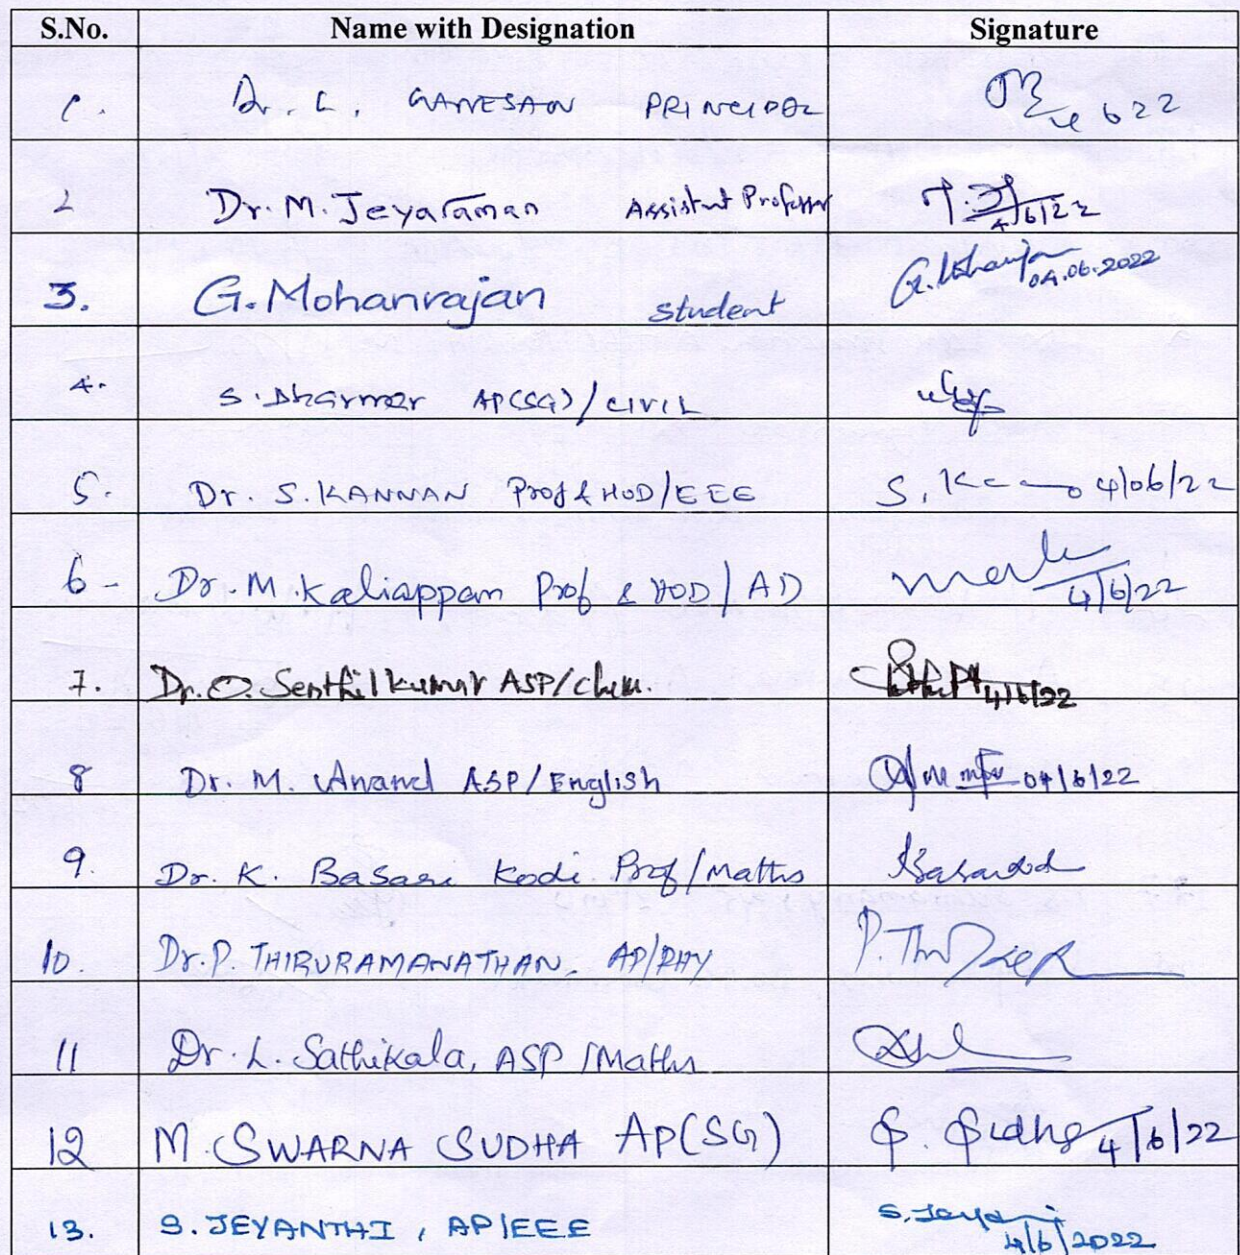 S.No. Name with Designation Signature
1. Dr. L. GANESAN PRINCIPAL 622
2 Dr. M. Jeyaraman Assistant Professor 4/6/22
3. G. Mohanrajan student G. Mohanrajan 04.06.2022
4. S. Dharmar AP(SG)/CIVIL
5. Dr. S. KANNAN Prof & HOD/EEE S. K 4/06/22
6 - Dr. M. Kaliappan Prof & HOD/AD 4/6/22
7. Dr. O. Senthilkumar ASP/chem. 4/6/22
8 Dr. M. Anand ASP/English 04/6/22
9. Dr. K. Basari Kodi Prof/Maths
10. Dr. P. THIRURAMANATHAN, AP/PHY P.
11 Dr. L. Sathikala, ASP/Maths
12 M. SWARNA SUDHA AP(SG) 4/6/22
13. S. JEYANTHI, AP/EEE S. 4/6/2022